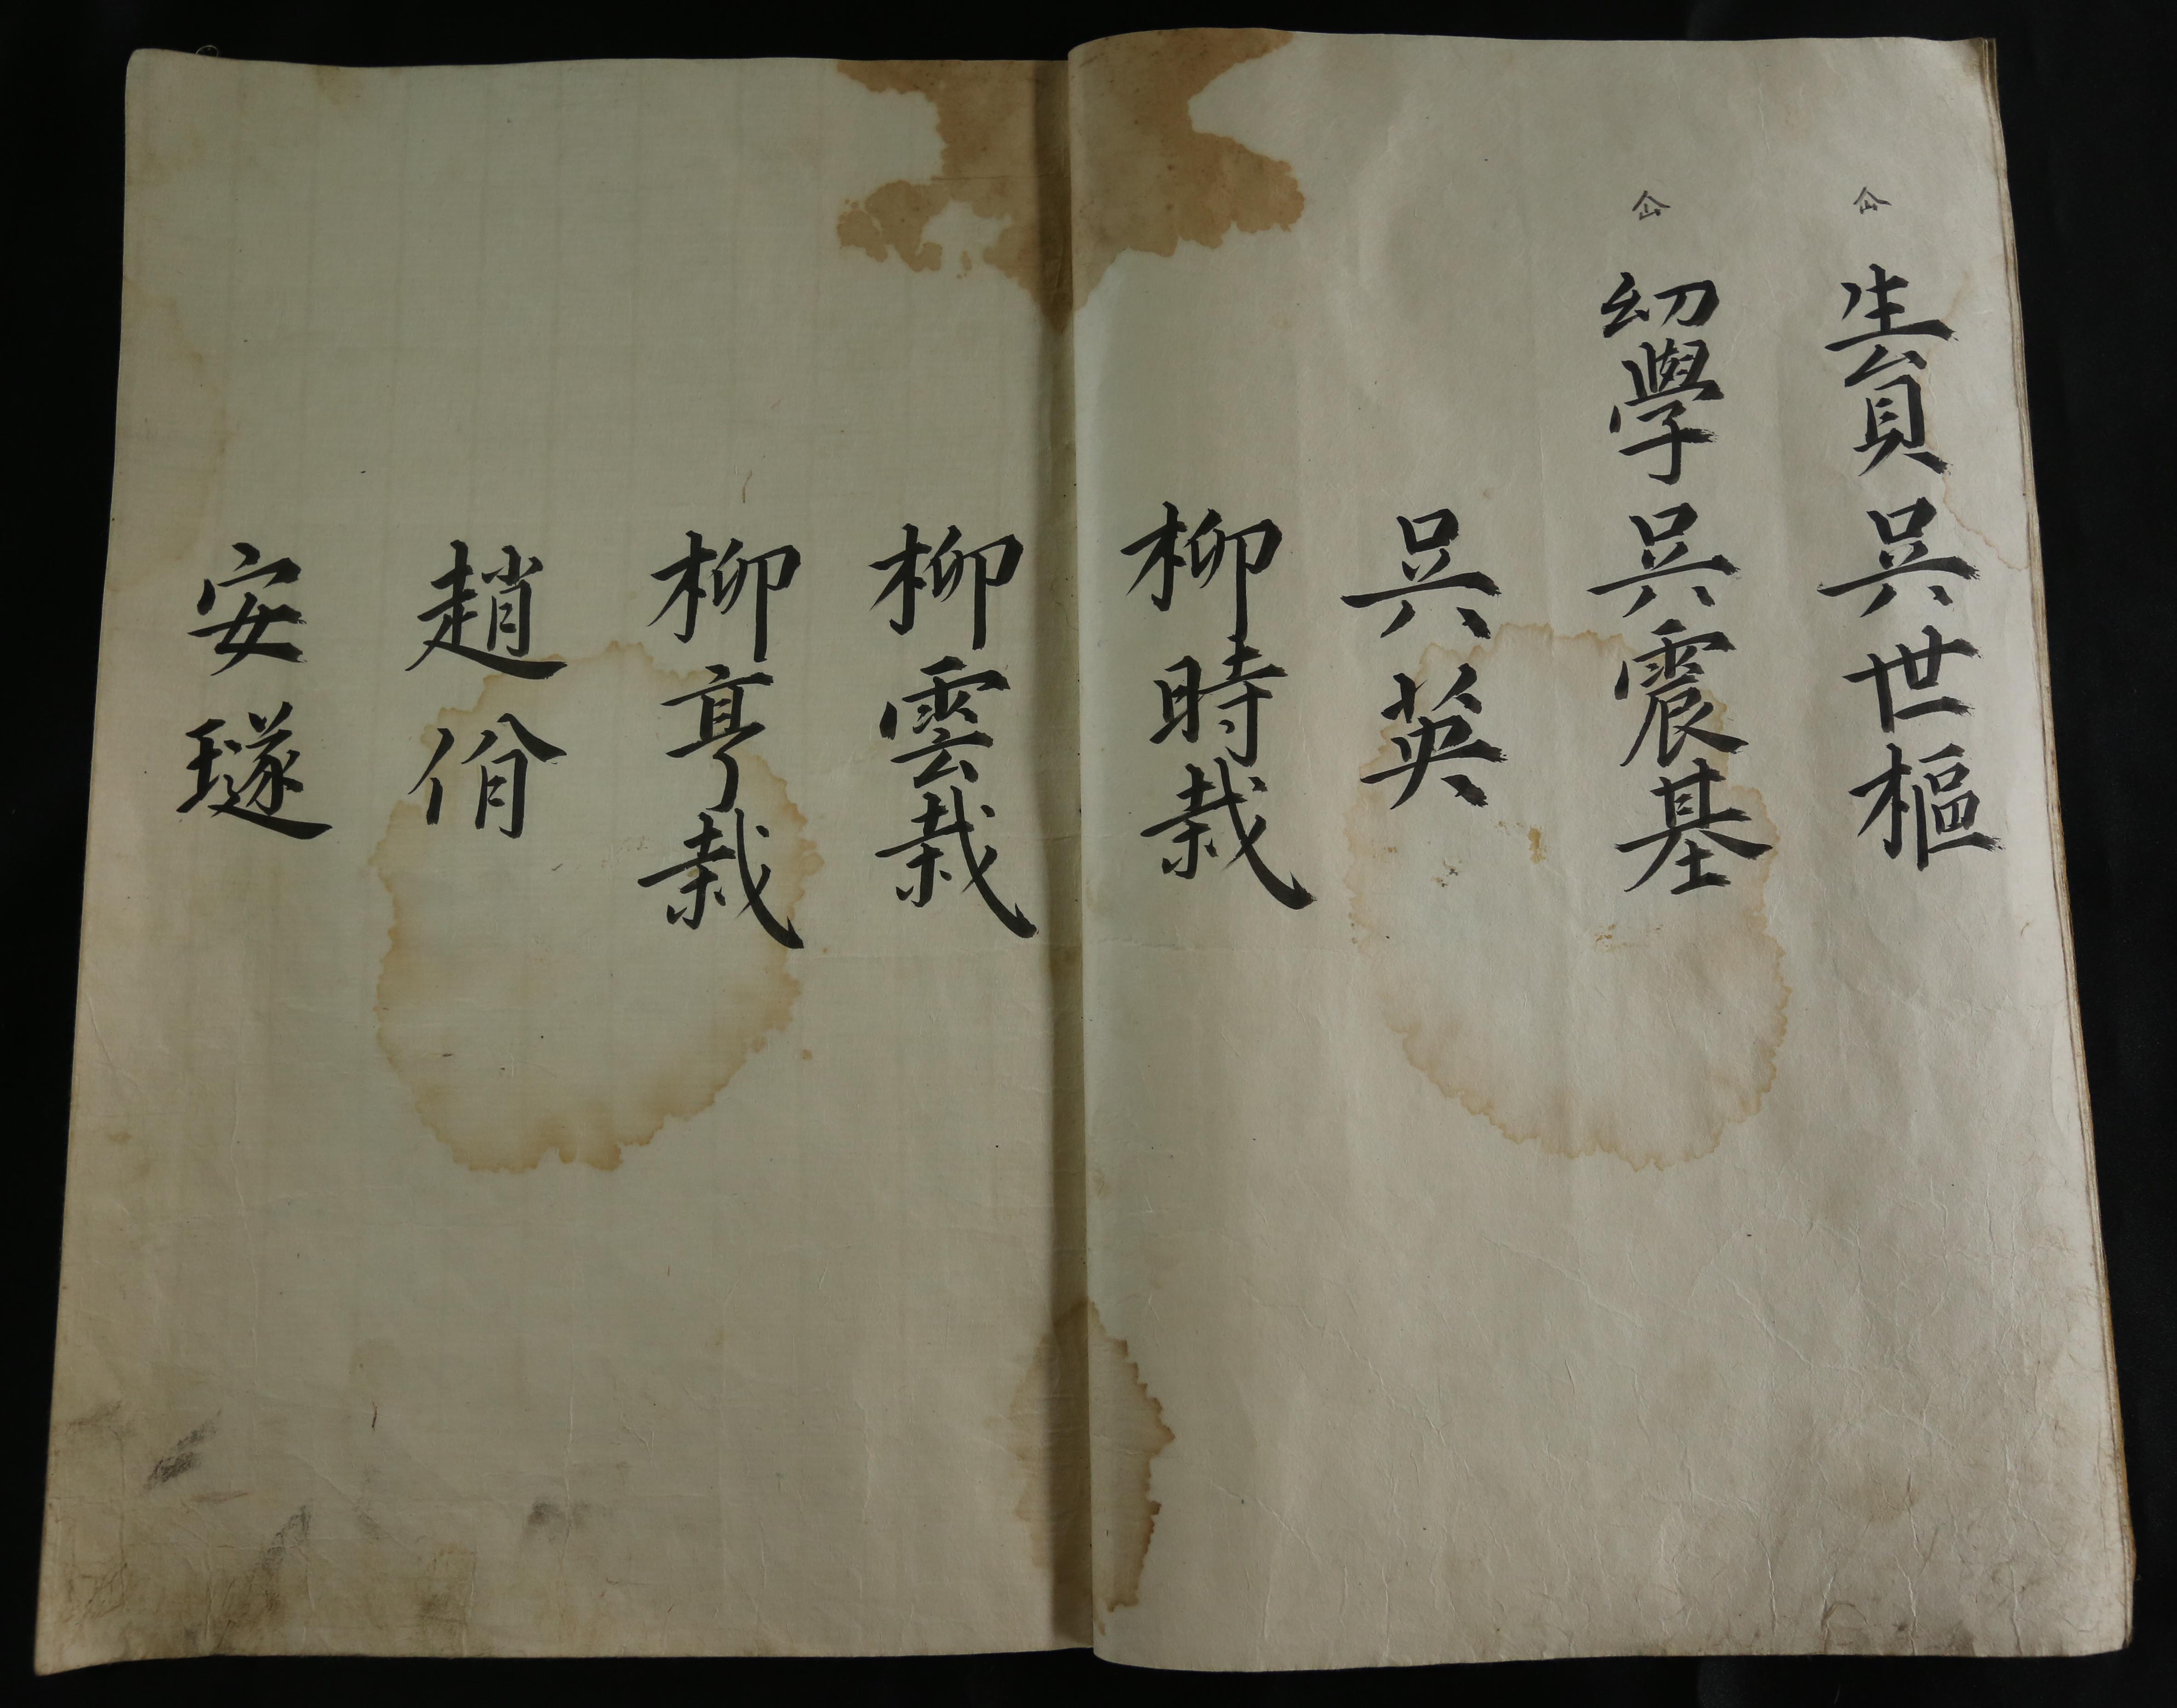 仚 生員 吳世樞
仚 幼學 吳震基
吳英
柳時栽
柳雲栽
柳亨栽
趙佾
安璲